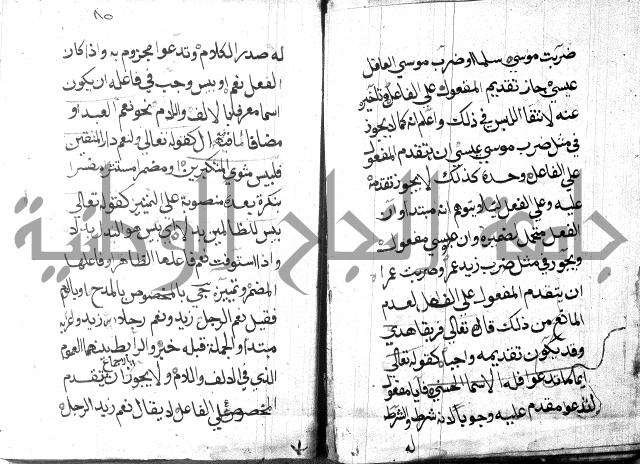 ضربت موسى سلما وضرب موسى العاقل
عيسى جاز تقديم المفعول على الفاعل وتاخيره
عنه لانتفا اللبس في ذلك واعلم انه كما لا يجوز
في مثل ضرب موسى عيسى ان يتقدم المفعول
على الفاعل وحده كذلك لا يجوز تقدمه
عليه وعلى الفعل ليلا يتوهم انه مبتدا وان
الفعل متحمل لضميره وان عيسى مفعول
ويجوز في مثل ضرب زيد عمرا وضربت عمرا
ان يتقدم المفعول على الفعل لعدم
المانع من ذلك قال تعالى فريقا هدى
وقد يكون تقديمه واجبا كقوله تعالى
اياما تدعوا فله الاسما الحسنى فايا مفعول
لتدعو مقدم عليه وجوبا لانه شرط والشرط
له
٨٥
له صدر الكلام وتدعوا مجزوم به واذا كان
الفعل نعم او بيس وجب في فاعله ان يكون
اسما معرفا بالالف واللام نحو نعم العبد او
مضافا لما فيه ال كقوله تعالى ولنعم دار المتقين
فلبيس مثوى المتكبرين او مضمر مستتر مفسرا
بنكرة بعده منصوبة على التمييز كقوله تعالى
بيس للظالمين بدلا اي بيس هو البدل بدلا
واذا استوفت نعم فاعلها الظاهر او فاعلها
المضمر وتمييزه جي بالمخصوص بالمدح او بالذم
فقيل نعم الرجل زيد ونعم رجلا زيد
مبتدا والجملة قبله خبر والرابط بينهما العموم
الذي في الالف واللام ولا يجوز ان يتقدم
المخصوص على الفاعل لا يقال نعم زيد الرجل
جامعة النجاح الوطنية